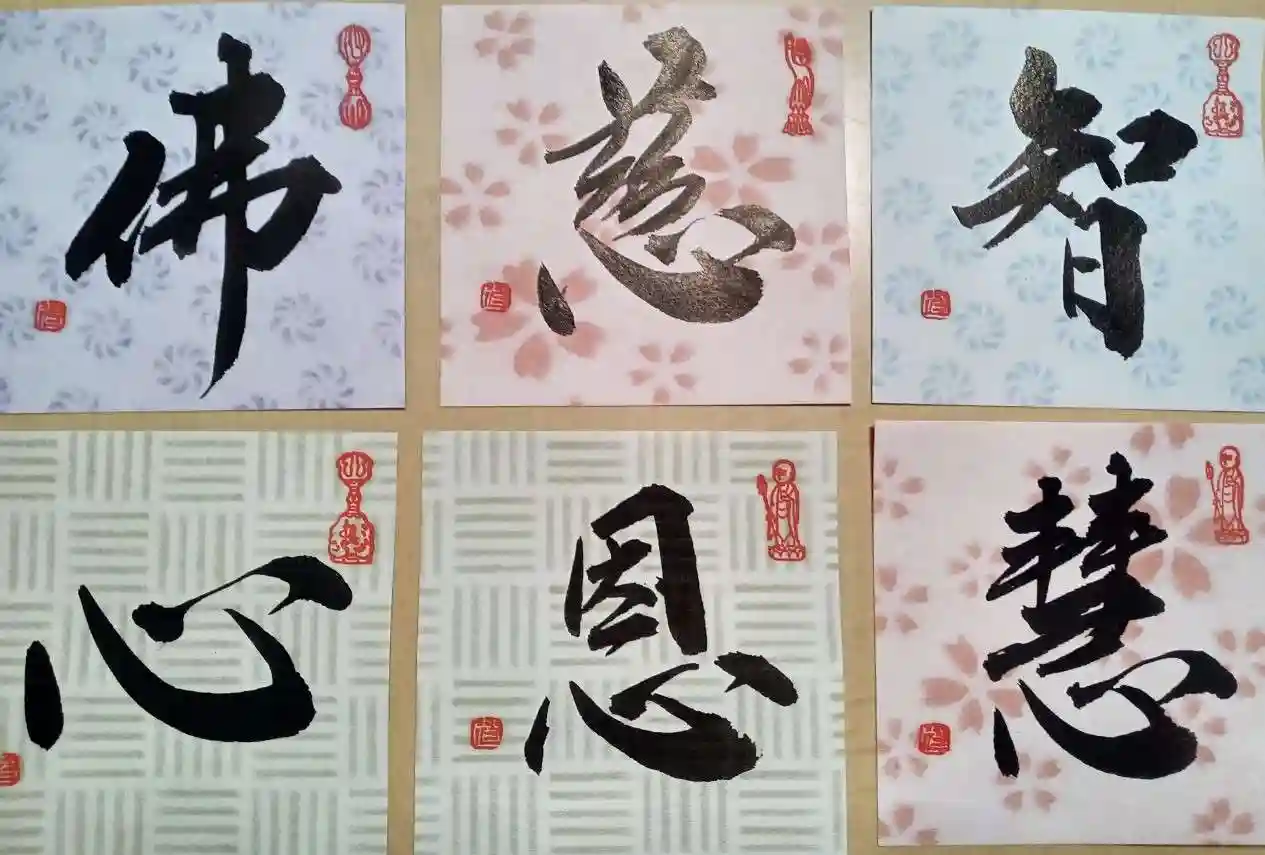 佛
慈
智
心
恩
慧